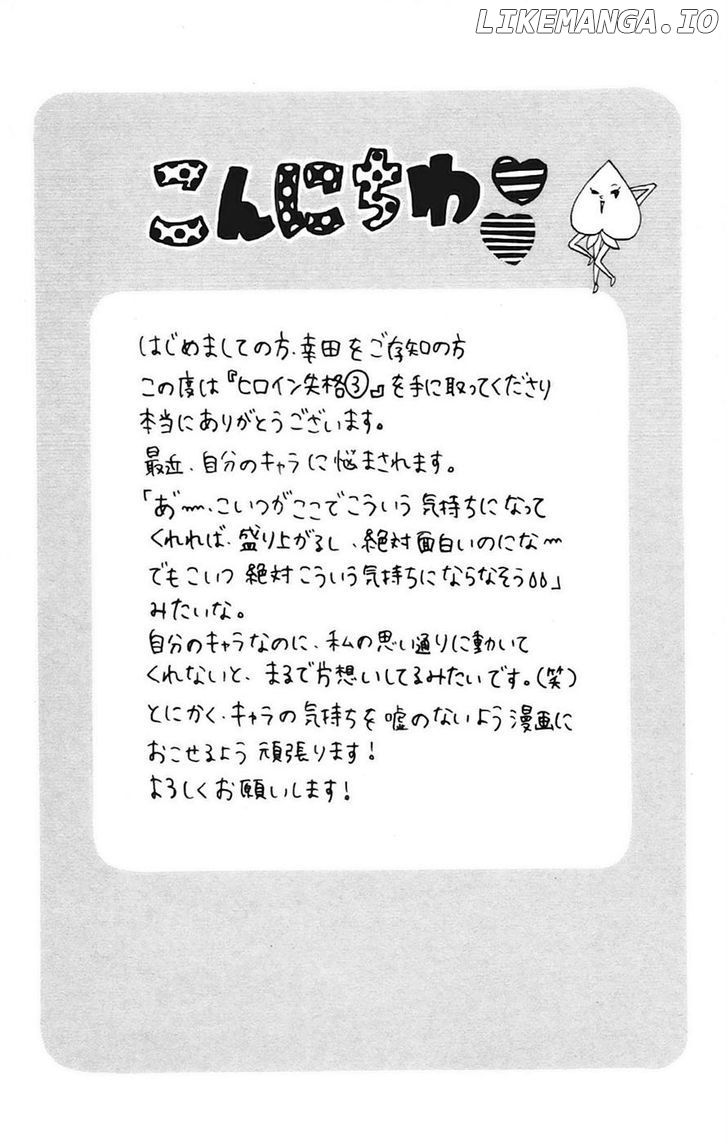 LIKEMANGA.IO
こんにちわ
はじめましての方、幸田をご存知の方
この度は『ヒロイン失格③』を手に取ってくださり
本当にありがとうございます。
最近、自分のキャラに悩まされます。
「あ゛〜、こいつがここでこういう気持ちになって
くれれば、盛り上がるし、絶対面白いのにな〜
でもこいつ絶対こういう気持ちにならなそう」
みたいな。
自分のキャラなのに、私の思い通りに動いて
くれないと、まるで片想いしてるみたいです。(笑)
とにかく、キャラの気持ちを嘘のないよう漫画に
おこせるよう頑張ります!
よろしくお願いします!